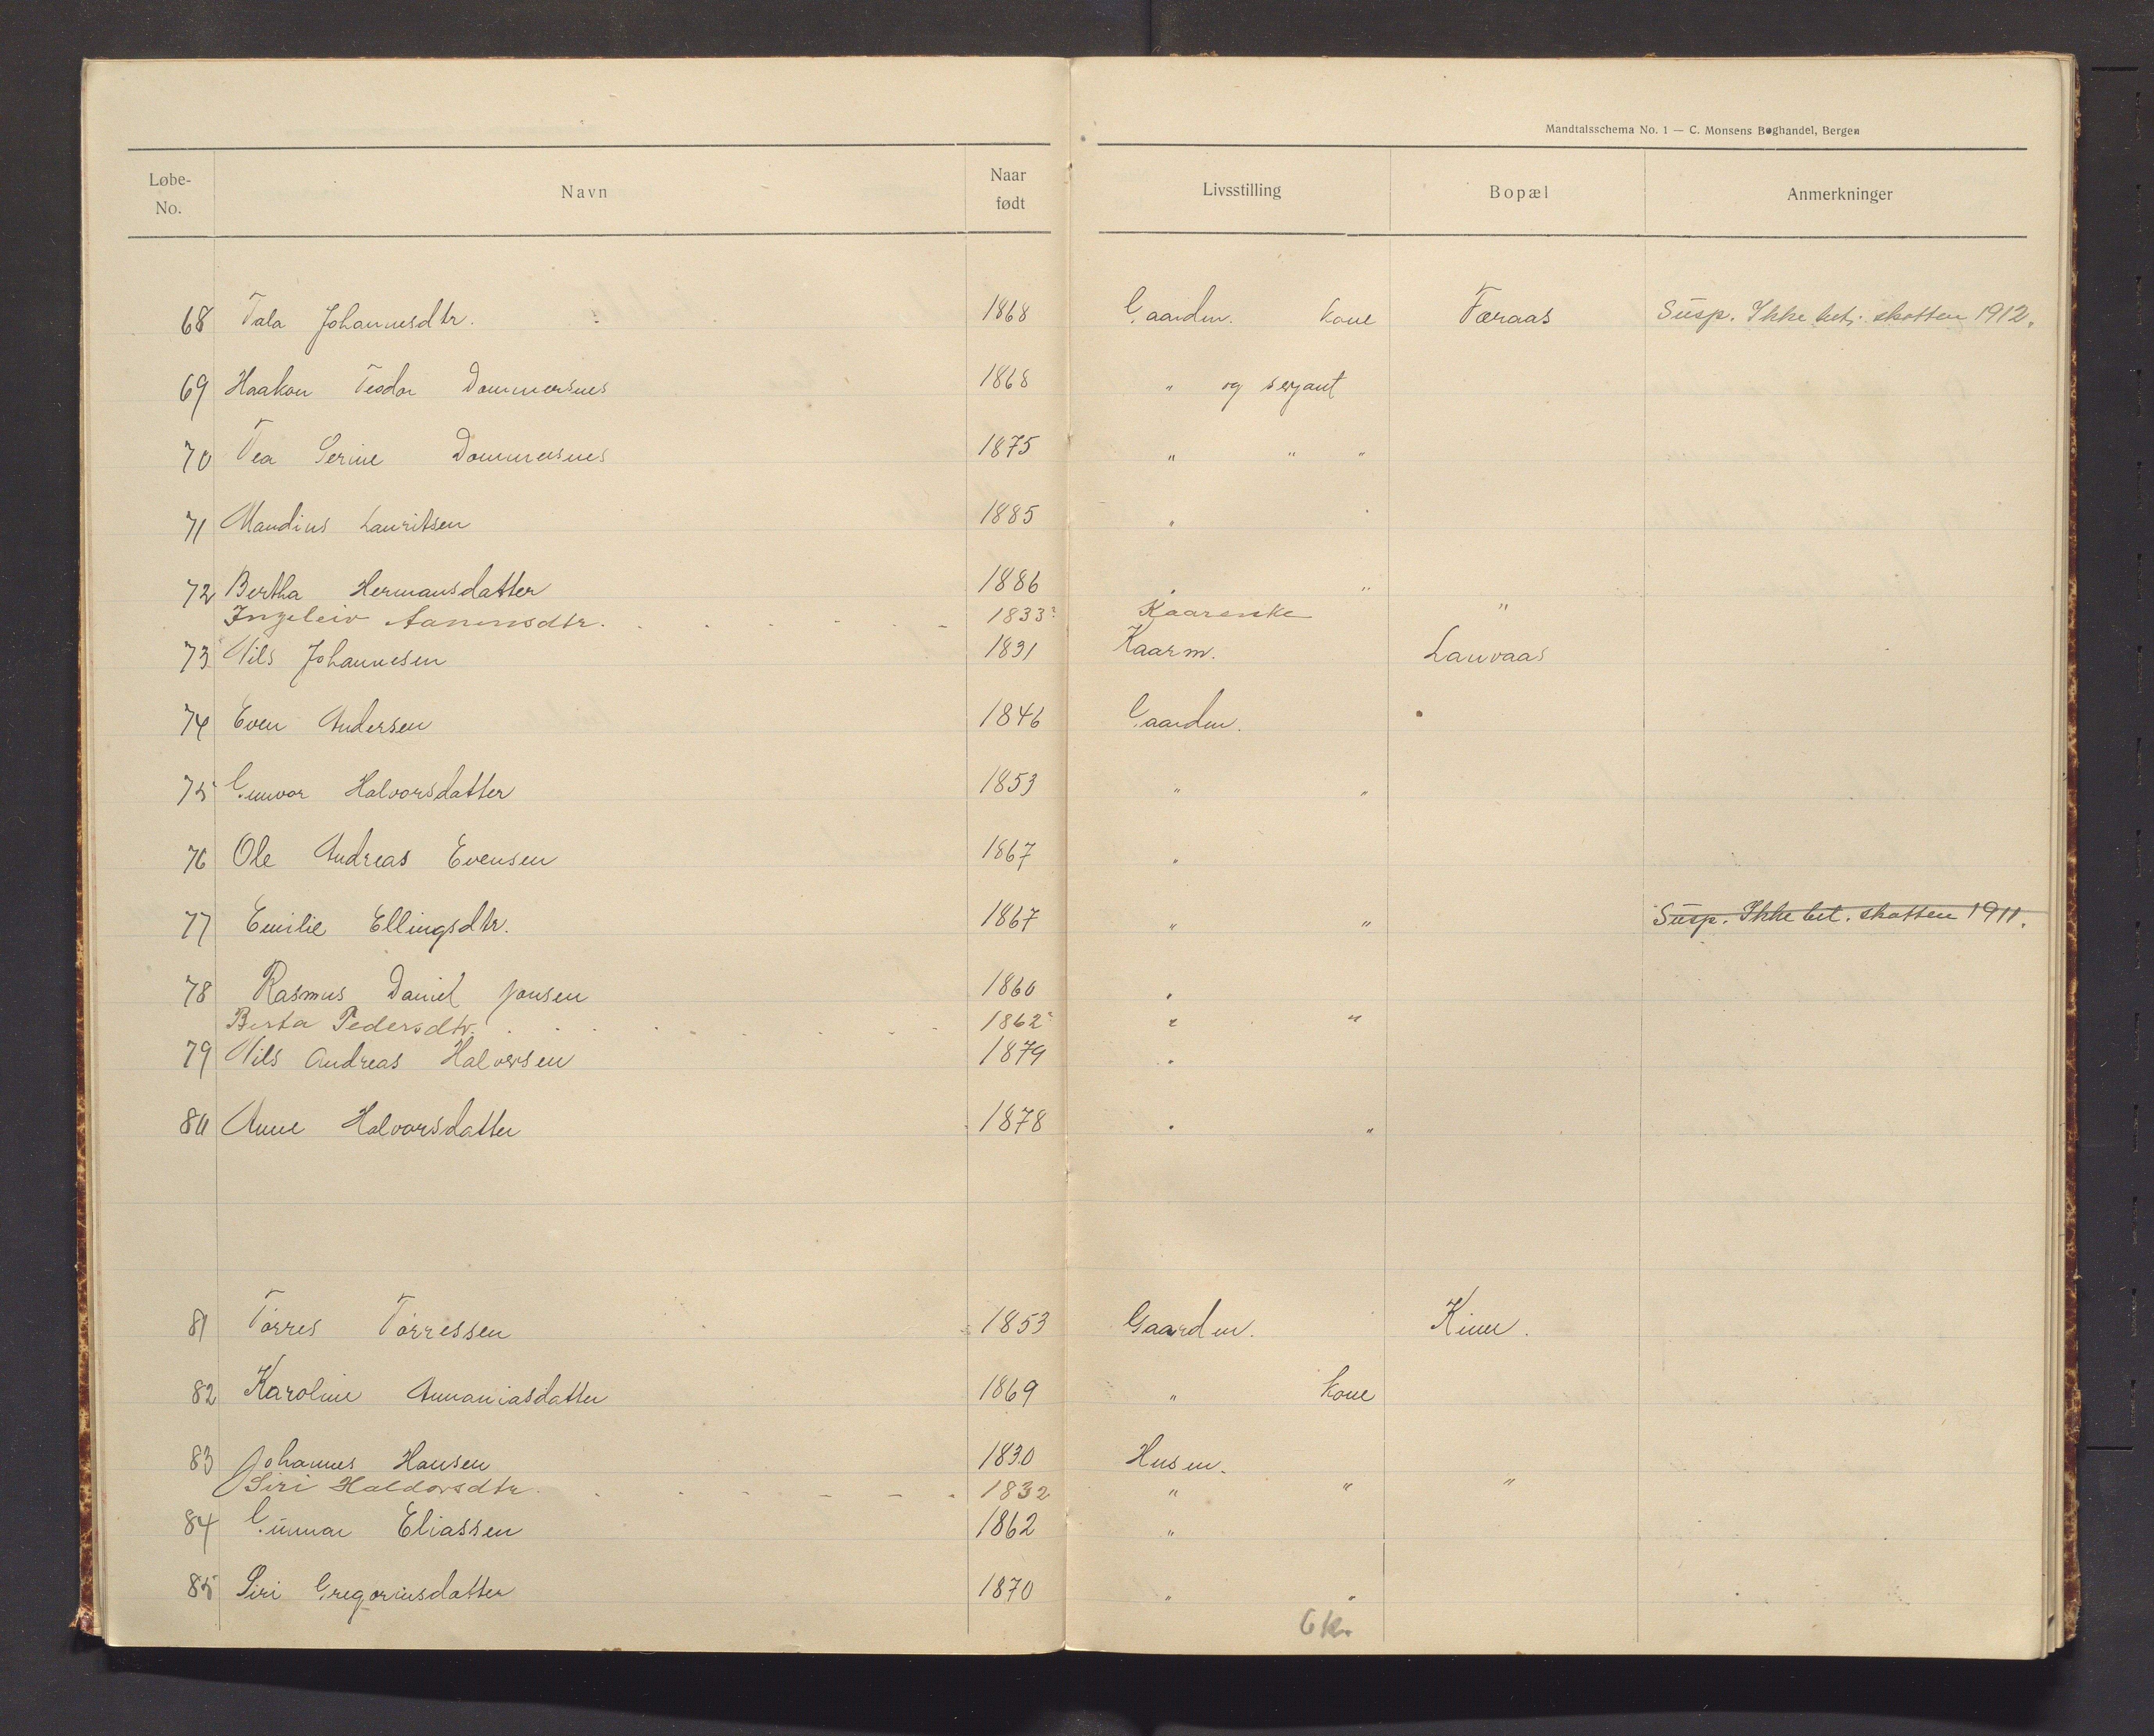 Mandtalsschema No. 1 — C. Monsens Boghandel, Bergen
Løbe-No. Navn Naar født Livsstilling Bopæl Anmerkninger
68 Tala Johannesdtr. 1868 Gaardm. kone Færaas Susp. Ikke bet. skatten 1912.
69 Haakon Teodor Dommersnes 1868 " og serjant
70 Tea Serine Dommersnes 1875 " " "
71 Mandius Lauritsen 1885 "
72 Bertha Hermansdatter 1886 " "
Ingeleiv Aanensdtr. 1833 Kaarenke "
73 Nils Johannesen 1831 Kaarm. Lauvaas
74 Even Andersen 1846 Gaardm.
75 Gunvor Halvorsdatter 1853 " "
76 Ole Andreas Evensen 1867 "
77 Emilie Ellingsdtr. 1867 " " Susp. Ikke bet. skatten 1911.
78 Rasmus Daniel Jonsen 1860 "
Berta Pedersdtr. 1862 " "
79 Nils Andreas Halvorsen 1879 "
80 Anne Halvorsdatter 1878 " "
81 Tørres Tørressen 1853 Gaardm. Kinn.
82 Karoline Annaniasdatter 1869 " kone
83 Johannes Hansen 1830 Husm.
Siri Haldorsdtr. 1832 " " "
84 Gunnar Eliassen 1862 "
85 Siri Gregoriusdatter 1870 " "
6 kr.